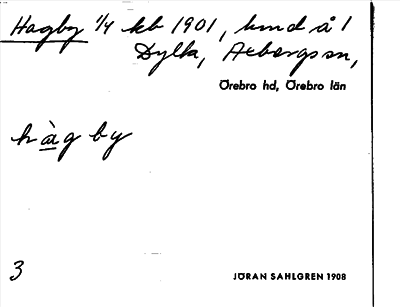 Hagby 1/4 kb 1901, hmd å 1
Dylta, Axbergs sn,
Örebro hd, Örebro län
hàg by
3
JÖRAN SAHLGREN 1908